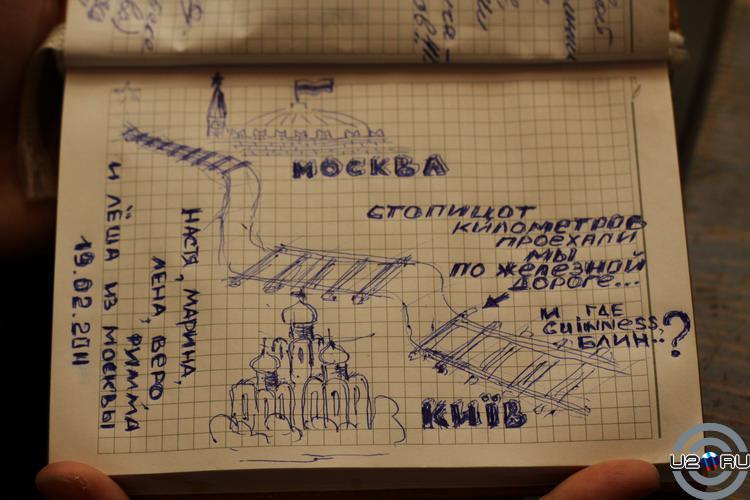 МОСКВА
СТОПИЦОТ
КИЛОМЕТРОВ
ПРОЕХАЛИ
МЫ
ПО ЖЕЛЕЗНОЙ
ДОРОГЕ...
И ГДЕ
GUINNESS,
БЛИН..?
КИЇВ
НАСТЯ, МАРИНА,
ЛЕНА, ВЕРО
РИММА
И ЛЁША ИЗ МОСКВЫ
19.02.2011
U2.RU